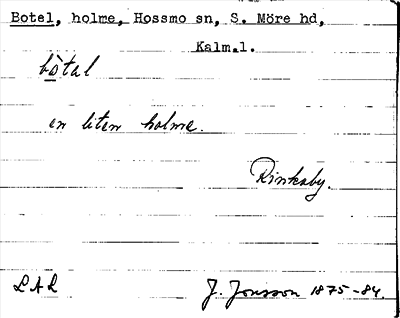 Botel, holme, Hossmo sn, S. Möre hd,
Kalm.l.
bòtal
en liten holme.
Rinkaby.
LAL J. Jonsson 1875-84.